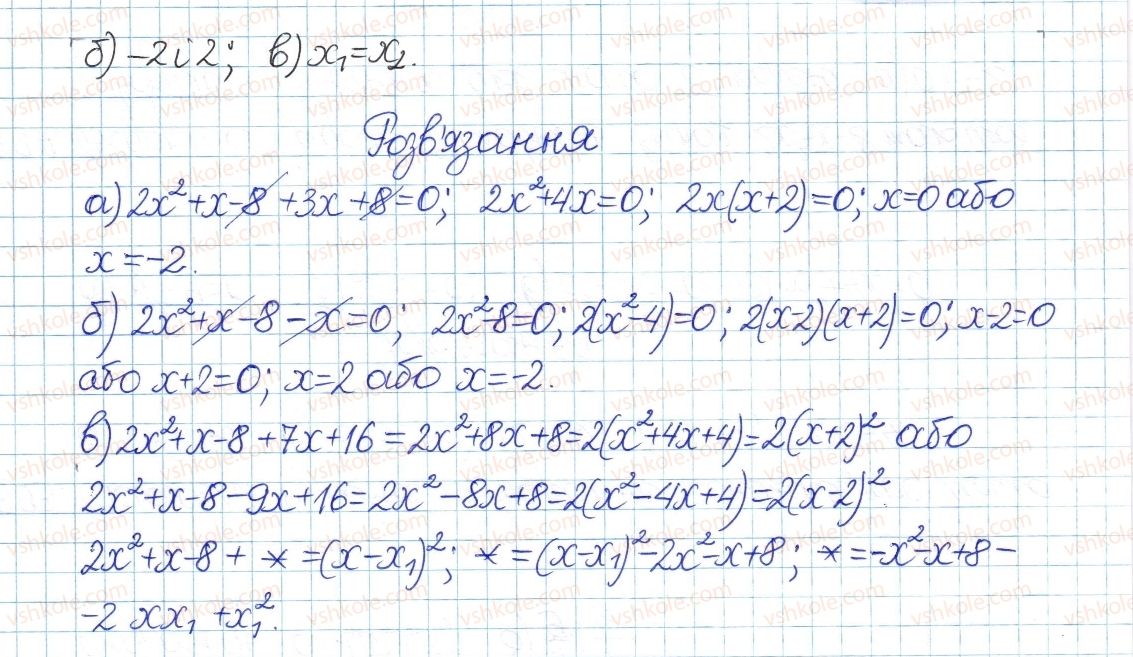 б) -2 і 2; в) x₁=x₂.
Розв'язання
а) 2x²+x-8+3x+8=0; 2x²+4x=0; 2x(x+2)=0; x=0 або
x=-2.
б) 2x²+x-8-x=0; 2x²-8=0; 2(x²-4)=0; 2(x-2)(x+2)=0; x-2=0
або x+2=0; x=2 або x=-2.
в) 2x²+x-8+7x+16=2x²+8x+8=2(x²+4x+4)=2(x+2)² або
2x²+x-8-9x+16=2x²-8x+8=2(x²-4x+4)=2(x-2)².
2x²+x-8+ * =(x-x₁)²; * =(x-x₁)²-2x²-x+8; * =-x²-x+8-
-2xx₁+x₁².